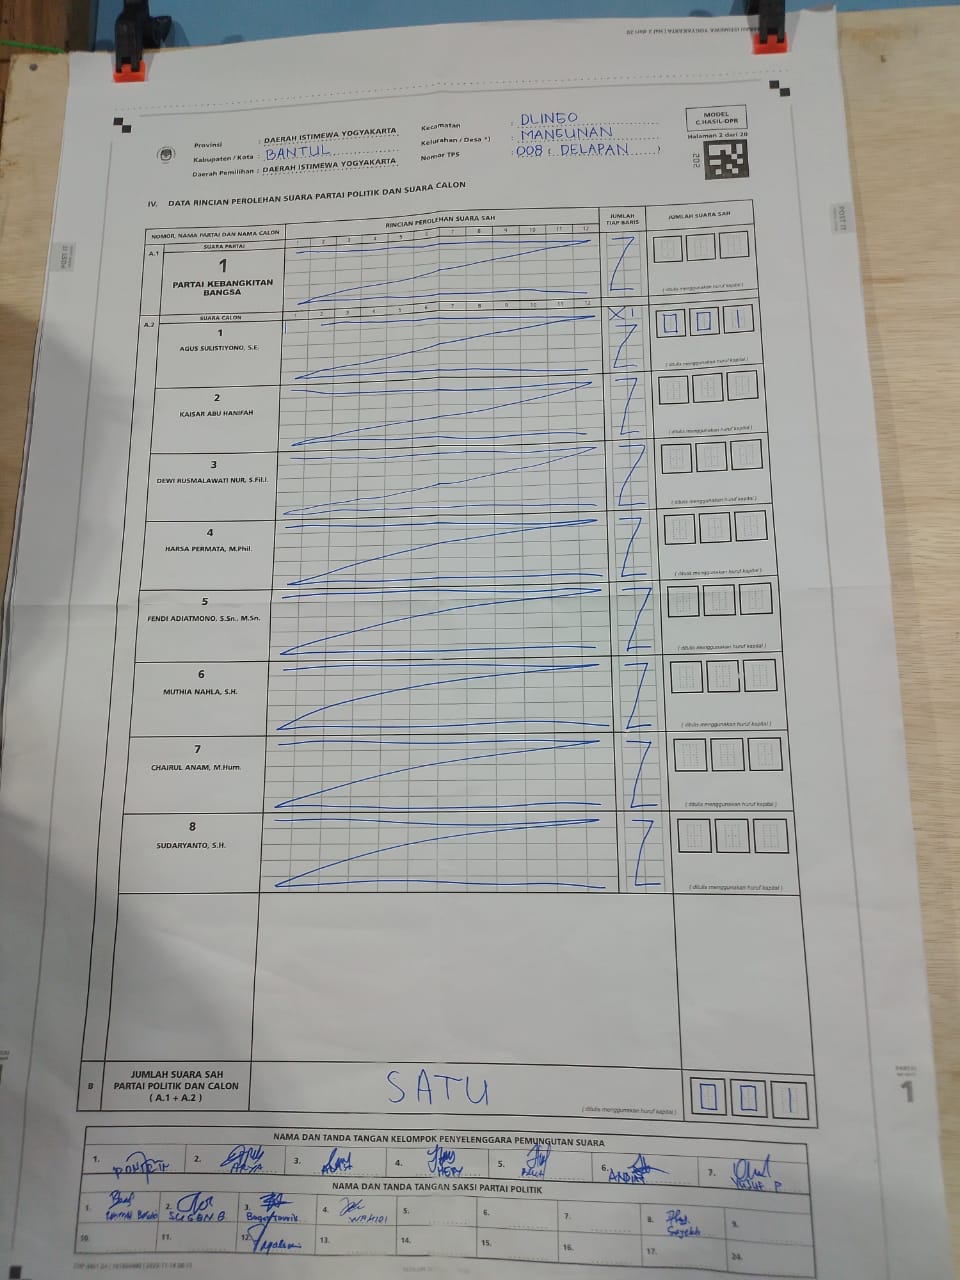 Provinsi : DAERAH ISTIMEWA YOGYAKARTA
Kabupaten / Kota : BANTUL
Daerah Pemilihan : DAERAH ISTIMEWA YOGYAKARTA
Kecamatan : DLINGO
Kelurahan / Desa *) : MANGUNAN
Nomor TPS : 008 ( DELAPAN )
MODEL
C.HASIL-DPR
Halaman 2 dari 20
202
IV. DATA RINCIAN PEROLEHAN SUARA PARTAI POLITIK DAN SUARA CALON
NOMOR, NAMA PARTAI DAN NAMA CALON
RINCIAN PEROLEHAN SUARA SAH
JUMLAH TIAP BARIS
JUMLAH SUARA SAH
A.1
SUARA PARTAI
1 2 3 4 5 6 7 8 9 10 11 12
1
PARTAI KEBANGKITAN
BANGSA
( ditulis menggunakan huruf kapital )
A.2
SUARA CALON
1 2 3 4 5 6 7 8 9 10 11 12
1
AGUS SULISTIYONO, S.E.
X 1
0 0 1
( ditulis menggunakan huruf kapital )
2
KAISAR ABU HANIFAH
( ditulis menggunakan huruf kapital )
3
DEWI RUSMALAWATI NUR, S.Fil.I.
( ditulis menggunakan huruf kapital )
4
HARSA PERMATA, M.Phil.
( ditulis menggunakan huruf kapital )
5
FENDI ADIATMONO, S.Sn., M.Sn.
( ditulis menggunakan huruf kapital )
6
MUTHIA NAHLA, S.H.
( ditulis menggunakan huruf kapital )
7
CHAIRUL ANAM, M.Hum.
( ditulis menggunakan huruf kapital )
8
SUDARYANTO, S.H.
( ditulis menggunakan huruf kapital )
B
JUMLAH SUARA SAH
PARTAI POLITIK DAN CALON
( A.1 + A.2 )
SATU
( ditulis menggunakan huruf kapital )
0 0 1
PARTAI
1
POST IT
POST IT
NAMA DAN TANDA TANGAN KELOMPOK PENYELENGGARA PEMUNGUTAN SUARA
1. 2. ARYA 3. 4. HERY 5. 6. 7. YUSUF P
NAMA DAN TANDA TANGAN SAKSI PARTAI POLITIK
1. 2. SUGENG 3. 4. WAHIDI 5. 6. 7. 8. 9.
10. 11. 12. 13. 14. 15. 16. 17.